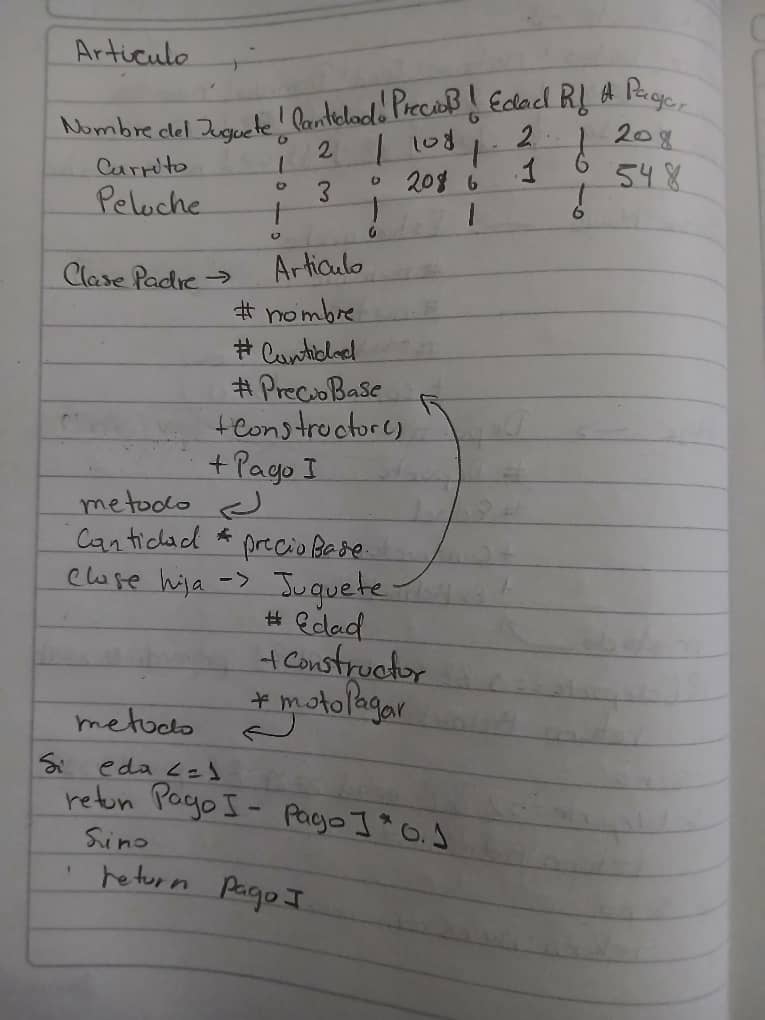 Articulo
Nombre del Juguete | Cantidad | PrecioB | Edad R | A Pagar
Carrito | 2 | 10$ | 2 | 20$
Peluche | 3 | 20$ | 1 | 54$
Clase Padre → Articulo
# nombre
# Cantidad
# PrecioBase
+ constructor()
+ Pago I
metodo ↵
Cantidad * precioBase.
clase hija -> Juguete
# Edad
+ constructor
* motoPagar
metodo ↵
Si eda <= 1
retun Pago I - Pago I * 0.1
Sino
return Pago I